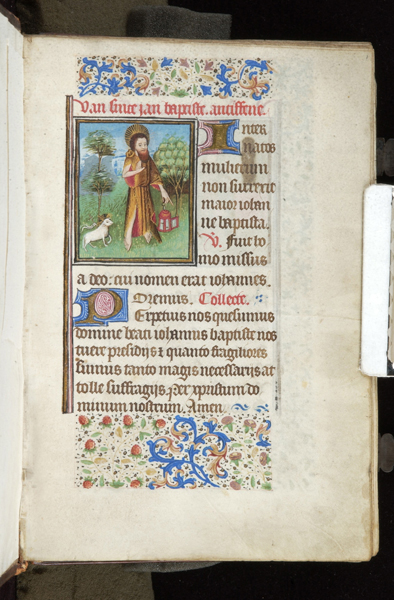 Van sinte ian baptiste. antiffene.
Inter
natos
mulierum
non surrexit
maior iohan
ne baptista.
V. Fuit ho
mo missus
a deo: cui nomen erat iohannes.
Oremus. Collecte.
Perpetuis nos quesumus
domine beati iohannis baptiste nos
tuere presidijs z quanto fragiliores
sumus tanto magis necessarijs at
tolle suffragijs. Per xpristum do
minum nostrum. Amen